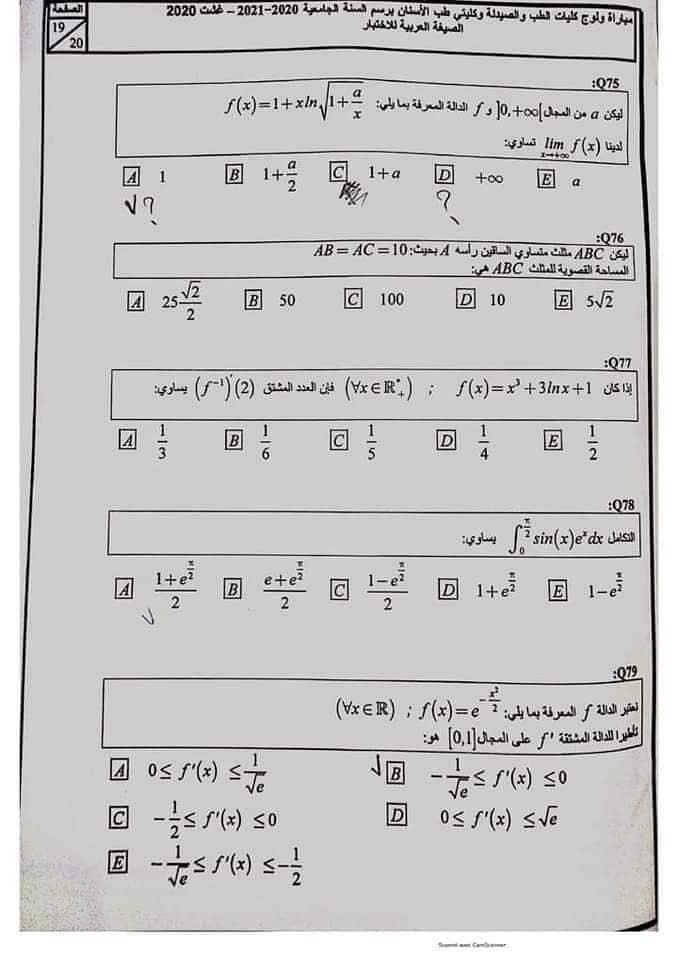 مباراة ولوج كليات الطب والصيدلة وكليتي طب الأسنان برسم السنة الجامعية 2020-2021 – غشت 2020
الصيغة العربية للاختبار
الصفحة
19
20
Q75:
ليكن a من المجال ]0,+∞[ و f الدالة المعرفة بما يلي: f(x)=1+xln√(1+a/x)
لدينا lim f(x) x→+∞ تساوي:
A 1 B 1+a/2 C 1+a D +∞ E a
√ ? ?
Q76:
ليكن ABC مثلث متساوي الساقين رأسه A بحيث: AB = AC = 10
المساحة القصوية للمثلث ABC هي:
A 25 √2/2 B 50 C 100 D 10 E 5√2
Q77:
إذا كان f(x) = x³ + 3lnx + 1 ; (∀x∈ℝ*₊) فإن العدد المشتق (f⁻¹)′(2) يساوي:
A 1/3 B 1/6 C 1/5 D 1/4 E 1/2
Q78:
التكامل ∫₀^(π/2) sin(x)eˣdx يساوي:
A (1+e^(π/2))/2 B (e+e^(π/2))/2 C (1−e^(π/2))/2 D 1+e^(π/2) E 1−e^(π/2)
√
Q79:
نعتبر الدالة f المعرفة بما يلي: f(x)=e^(−x²/2) ; (∀x∈ℝ)
تأطيرا للدالة المشتقة f′ على المجال [0,1] هو:
A 0≤ f′(x) ≤ 1/√e √ B −1/√e ≤ f′(x) ≤0
C −1/2 ≤ f′(x) ≤0 D 0≤ f′(x) ≤√e
E −1/√e ≤ f′(x) ≤ −1/2
Scanné avec CamScanner